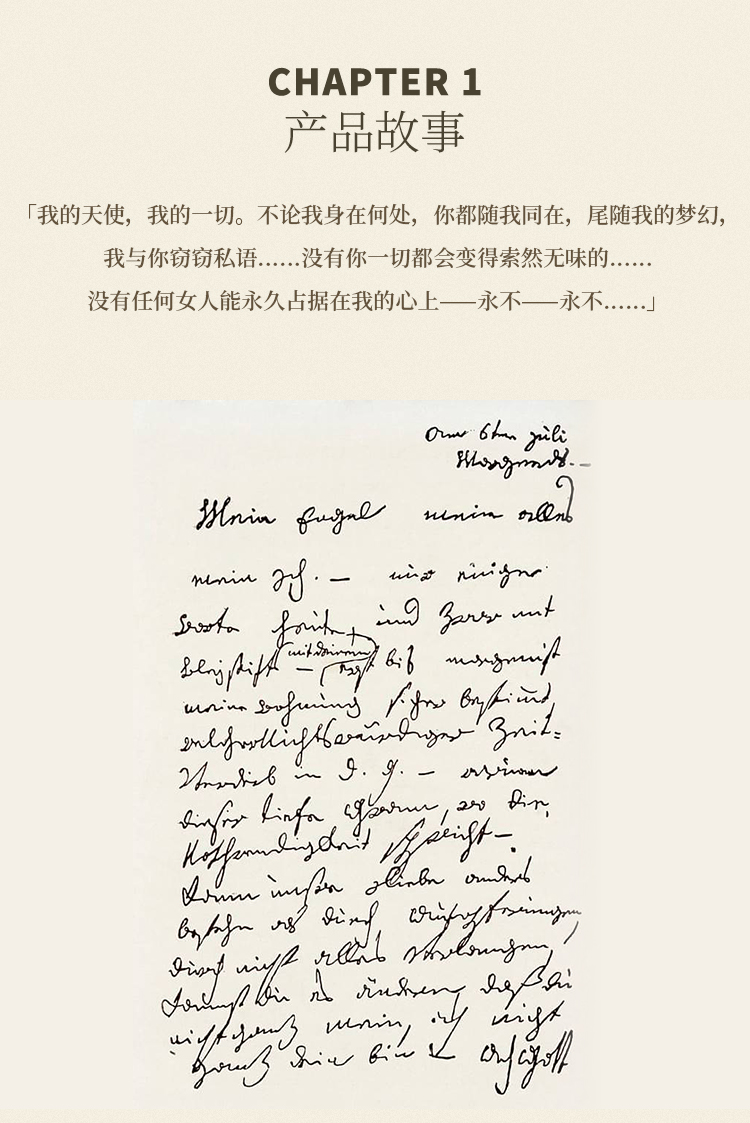 CHAPTER 1
产品故事
「我的天使，我的一切。不论我身在何处，你都随我同在，尾随我的梦幻，
我与你窃窃私语……没有你一切都会变得索然无味的……
没有任何女人能永久占据在我的心上——永不——永不……」
am 6ten juli
Morgends. –
Mein Engel mein alles
mein Ich. – nur einige
Worte heute, und zwar mit
Bleystift – mit deinem bis morgen ist
meine Wohnung sicher bestimt,
welcher nichtswürdiger Zeit-
Verderb in d. g. – warum
dieser tiefe Gram, wo die
Nothwendigkeit spricht –
Kann unsre Liebe anders
bestehn als durch Aufopferungen,
durch nicht alles verlangen,
kannst du es ändern, daß du
nicht ganz mein, ich nicht
ganz dein bin – Ach Gott